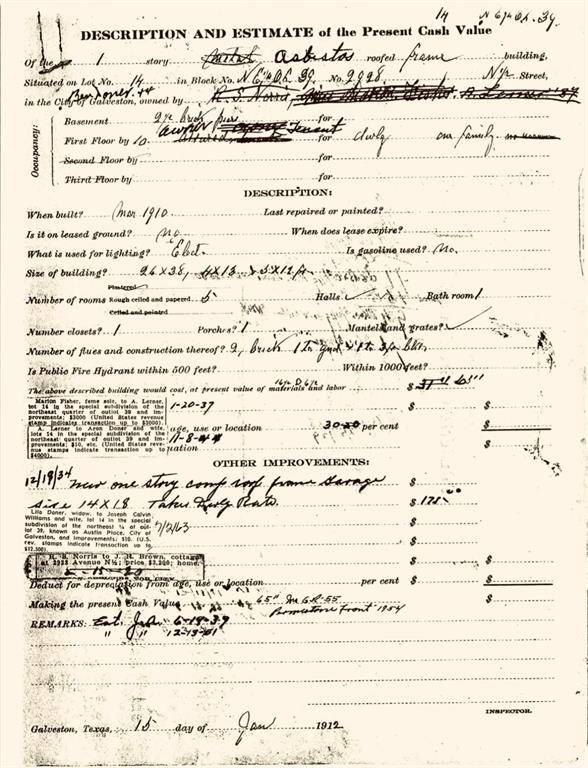 14 N E ¼ O.L. 39.
DESCRIPTION AND ESTIMATE of the Present Cash Value
Of the 1 story Asbestos roofed frame building,
Situated on Lot No. 14 in Block No. N E ¼ O.L. 39, No. 2928. N ½ Street,
in the City of Galveston, owned by R. S. Norris, A Lerner '37
Occupancy:
Basement brick piers for
First Floor by 10 owner Tenant for dwlg one family
Second Floor by for
Third Floor by for
DESCRIPTION:
When built? Mar 1910. Last repaired or painted?
Is it on leased ground? no When does lease expire?
What is used for lighting? Elect. Is gasoline used? No.
Size of building? 26 X 38, 4X13 & 3X12 ft.
Plastered
Number of rooms Rough ceiled and papered 5 Halls Bath room 1
Ceiled and painted
Number closets? 1 Porches? 1 Mantels and grates?
Number of flues and construction thereof? 2, brick
Is Public Fire Hydrant within 500 feet? Within 1000 feet?
The above described building would cost, at present value of materials and labor $
Marion Fisher, feme sole, to A. Lerner,
lot 14 in the special subdivision of the
northeast quarter of outlot 39 and im-
provements; $3000 (United States revenue
stamp indicates transaction up to $3000).
1-20-37
A. Lerner to Aron Doner and wife,
lots 14 in the special subdivision of
the northeast quarter of outlot 39 and im-
provements; $10, etc. (United States reve-
nue stamps indicate transaction up to
$4000).
11-8-44
age, use or location 30-20 per cent $
uation $
OTHER IMPROVEMENTS:
12/19/34 New one story comp roof frame Garage $
size 14 X 18 Takes Dwlg Rate. $ 125.00
Lila Doner, widow, to Joseph Calvin
Williams and wife, lot 14 in the special
subdivision of the northeast ¼ of out-
lot 39, known as Austin Place, City of
Galveston, and improvements; $10. (U.S.
rev. stamps indicate transaction up to
$12,500).
7/2/63
R. S. Norris to J. H. Brown, cottage
at 2928 Avenue N½; price $3,250; home.
5-15-20
Deduct for depreciation from age, use or location per cent $
Making the present Cash Value 65" In GR-55 $
Brownstone front 1954
REMARKS: Ext. 6-19-39
" " 12-13-51
INSPECTOR.
Galveston, Texas, 15 day of Jan 1912